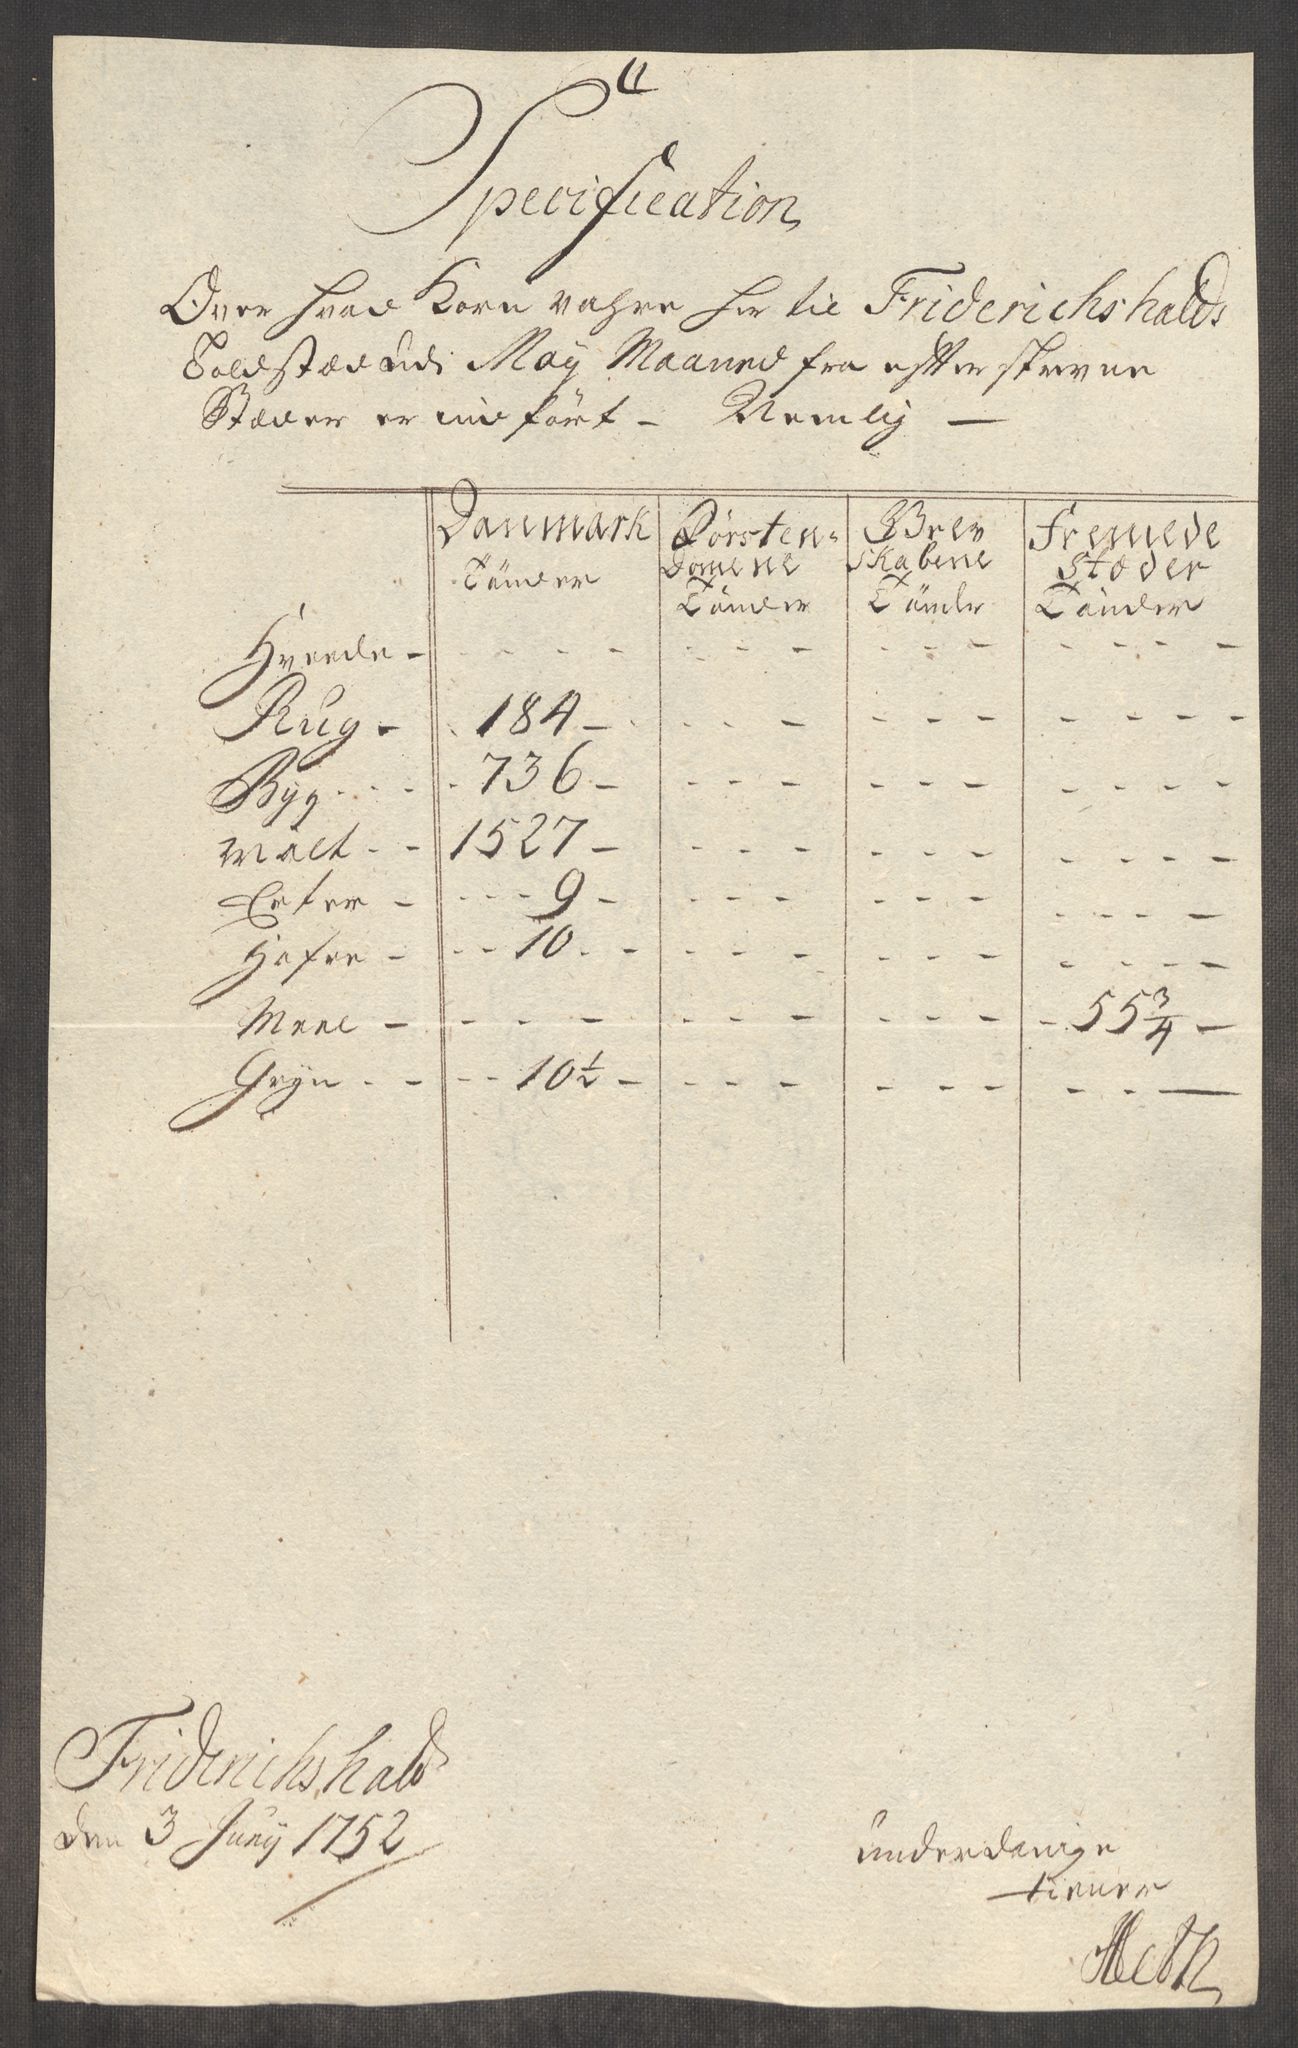 Specification
Over hvad Korn vahre her til Friderichshalds
Toldstæd udi May Maaned fra efterskrevne
Stæder er indført - Nemlig —
Danmark Førsten- Grev Fremede
Tønder domene skabene stæder
Tønder Tønder Tønder
Hveede - - - - - - - - - - - - - - -
Rug - 184 - - - - - - - - - - -
Byg - - - 736 - - - - - - - - - - -
Malt - - 1527 - - - - - - - - - - -
Erter - - - - 9 - - - - - - - - - - -
Hafre - - - 10 - - - - - - - - - - - -
Meel - - - - - - - - - - - - 55 3/4 -
Gryn - - - - 10 1/2 - - - - - - - - - —
Friderichshald
den 3 Juny 1752
underdanige
tiener